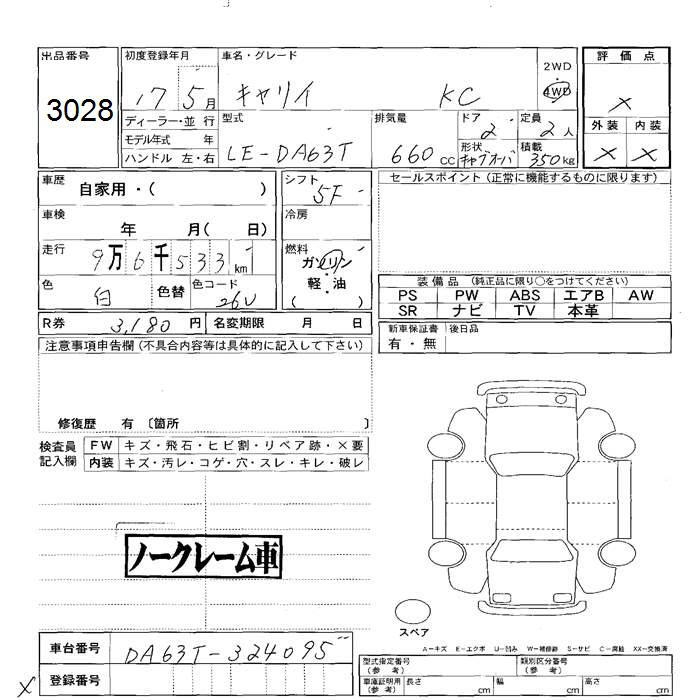 出品番号 初度登録年月 車名・グレード 2WD 評価点
3028 17 5月 キャリイ KC 4WD ×
ディーラー・並行 型式 排気量 ドア 定員 外装 内装
モデル年式 年 LE-DA63T 660cc 2 2人 × ×
ハンドル 左・右 形状 キャブオーバ 積載 350kg
車歴 自家用・( ) シフト 5F セールスポイント(正常に機能するものに限ります)
車検 年 月( 日) 冷房
走行 9万6千533km 燃料 ガソリン
軽・油
色 白 色替 色コード 26U ( ) 装備品(純正品に限り○をつけてください)
PS PW ABS エアB AW
R券 3,180円 名変期限 月 日 SR ナビ TV 本革
注意事項申告欄(不具合内容等は具体的に記入して下さい) 新車保証書 後日品
有・無
修復歴 有 〔箇所 〕
検査員 FW キズ・飛石・ヒビ割・リペア跡・×要
記入欄 内装 キズ・汚レ・コゲ・穴・スレ・キレ・破レ
ノークレーム車
スペア
A-キズ E-エクボ U-凹み W-補修跡 S-サビ C-腐蝕 XX-交換済
車台番号 DA63T-324095
型式指定番号(参考) 類別区分番号(参考)
× 登録番号 車庫証明用(参考) 長さ cm 幅 cm 高さ cm